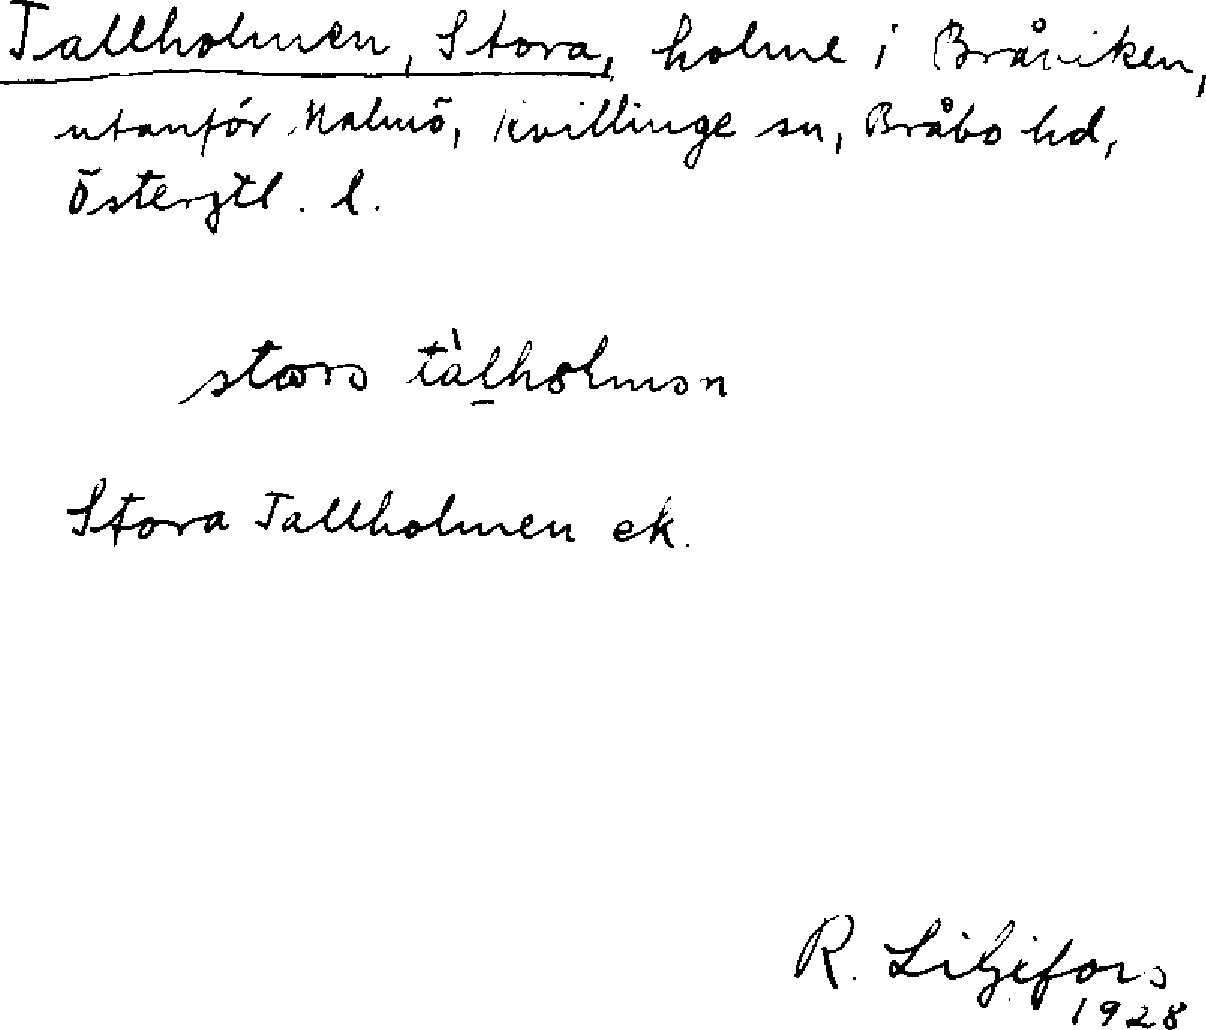 Tallholmen, Stora, holme i Bråviken,
utanför Malmö, Kvillinge sn, Bråbo hd,
Östergtl. l.
stωrɔ tàlhɵlmɔn
Stora Tallholmen ek.
R. Liljefors
1928